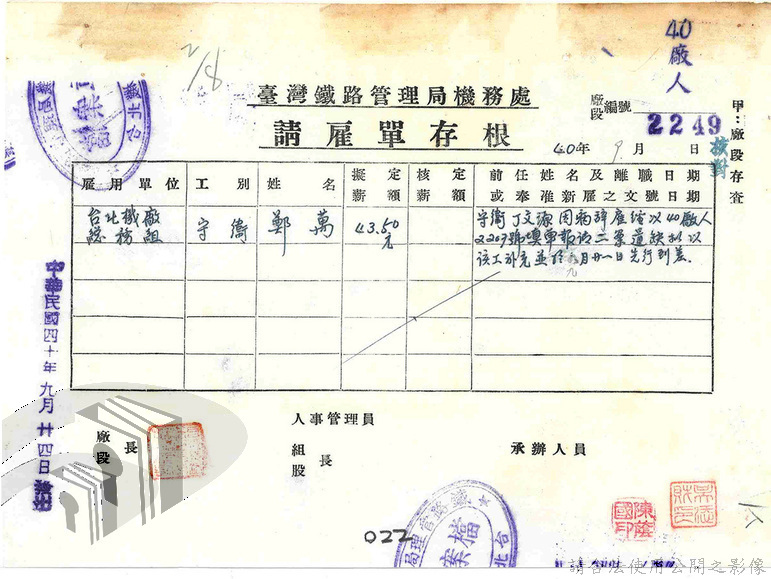 40
廠
人
臺灣鐵路管理局機務處
廠段編號
2249
請雇單存根
甲：廠段存查
核對
40年 9月 日
雇用單位 工別 姓名 擬定薪額 核定薪額 前任姓名及離職日期或奉准新雇之文號日期
台北機廠
總務組 守衛 鄭萬 43.50元
守衛丁文源因病辭雇經以40廠人
2207號填單報請二業遺缺擬以
該工補充並於九月廿一日先行到差.
中華民國四十年九月廿四日
廠段長
人事管理員
組股長
承辦人員
022
鐵路管理局
檔案
台北
請合法使用公開之影像